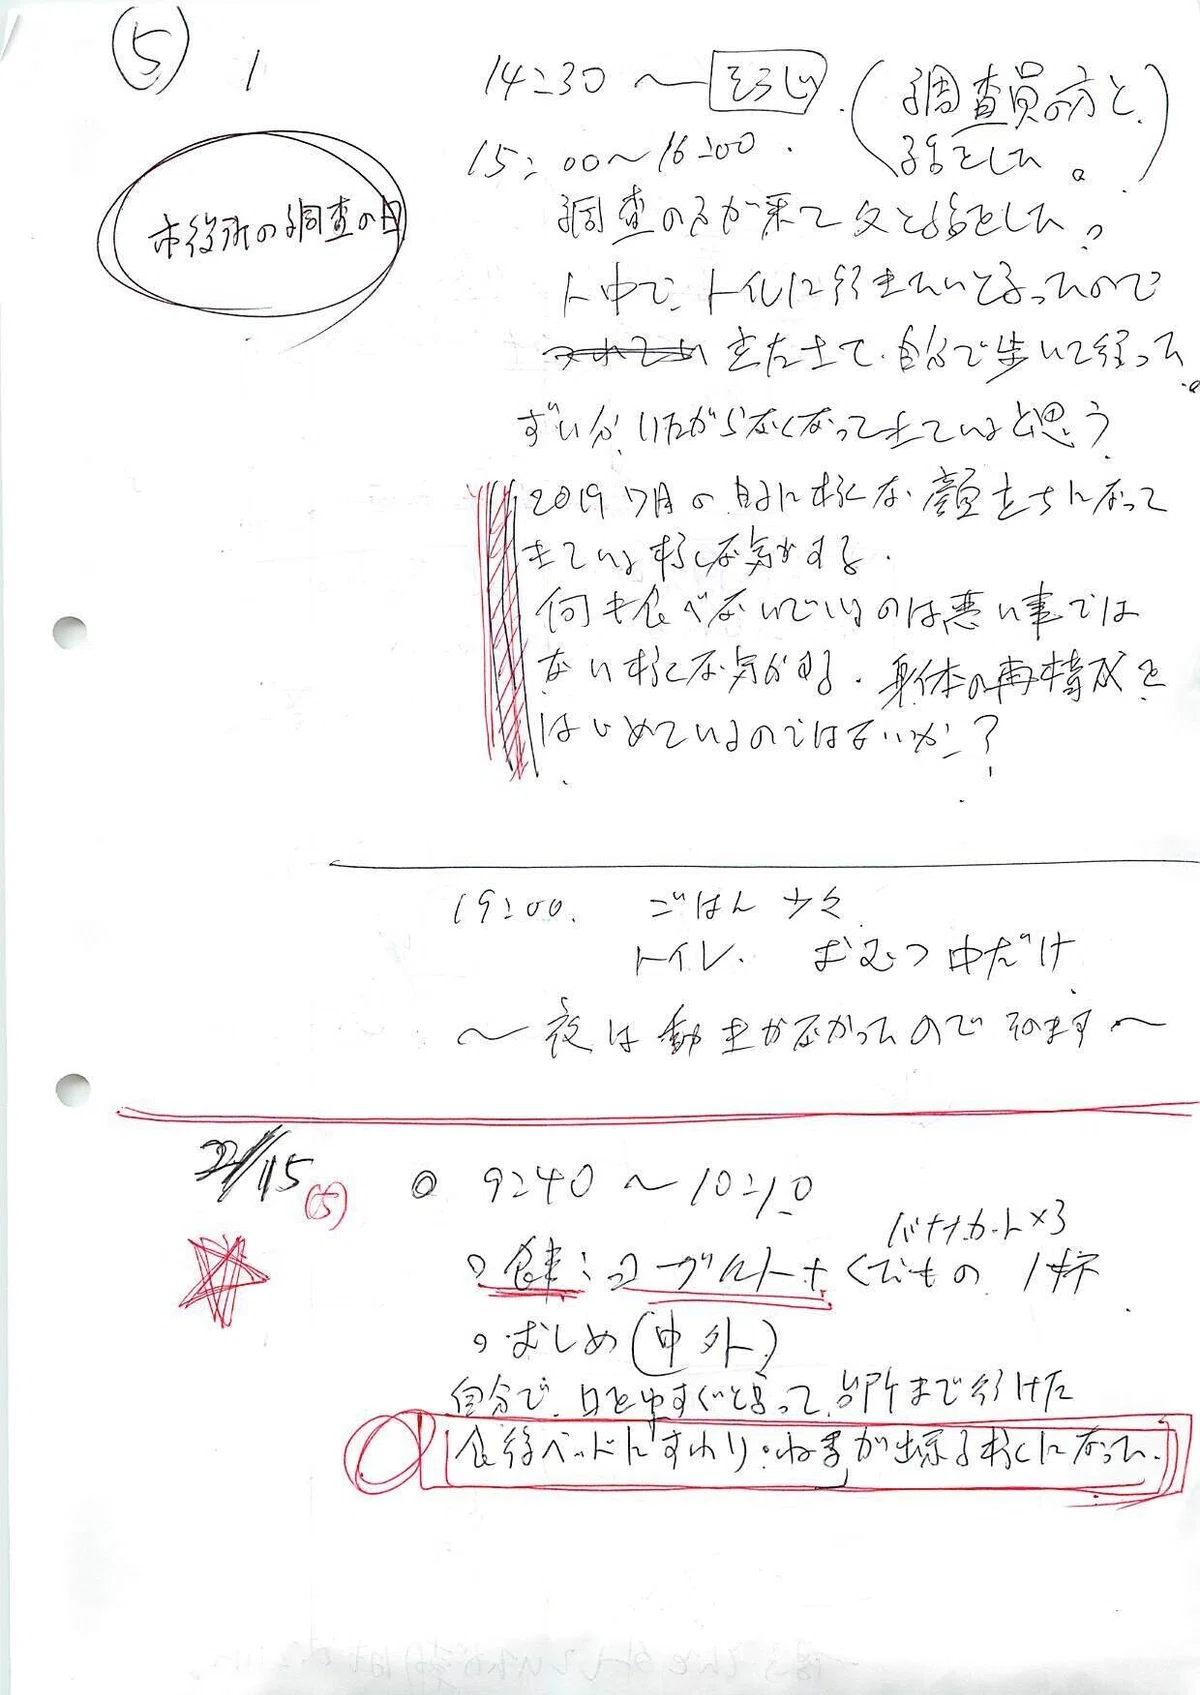 ⑤ 1
14:30 〜 そうじ (調査員の方と
話をした。)
15:00〜16:00.
市役所の調査の日
調査の方が来て父と話をした。
ト中で、トイレに行きたいと言ったので
立た土て、自分で歩いて行った。
ずい分いたがらなくなってきていると思う
2019 7月の時に様な顔立ちになって
きている様な気がする.
何も食べないでいるのは悪い事では
ない様な気がする. 身体の再構成を
はじめているのではないか?
19:00. ごはん 少々
トイレ. おむつ 中だけ
〜夜は動きがなかったので 〜
/15 (5)
◎ 9:40 〜 10:10
バナナカート×3
○食事:ヨーグルト+くだもの 1杯
○おしめ(中 外)
自分で、口をゆすぐと言って、台所まで行けた
食後ベッドにすわり、ねる事が出来る様になった.